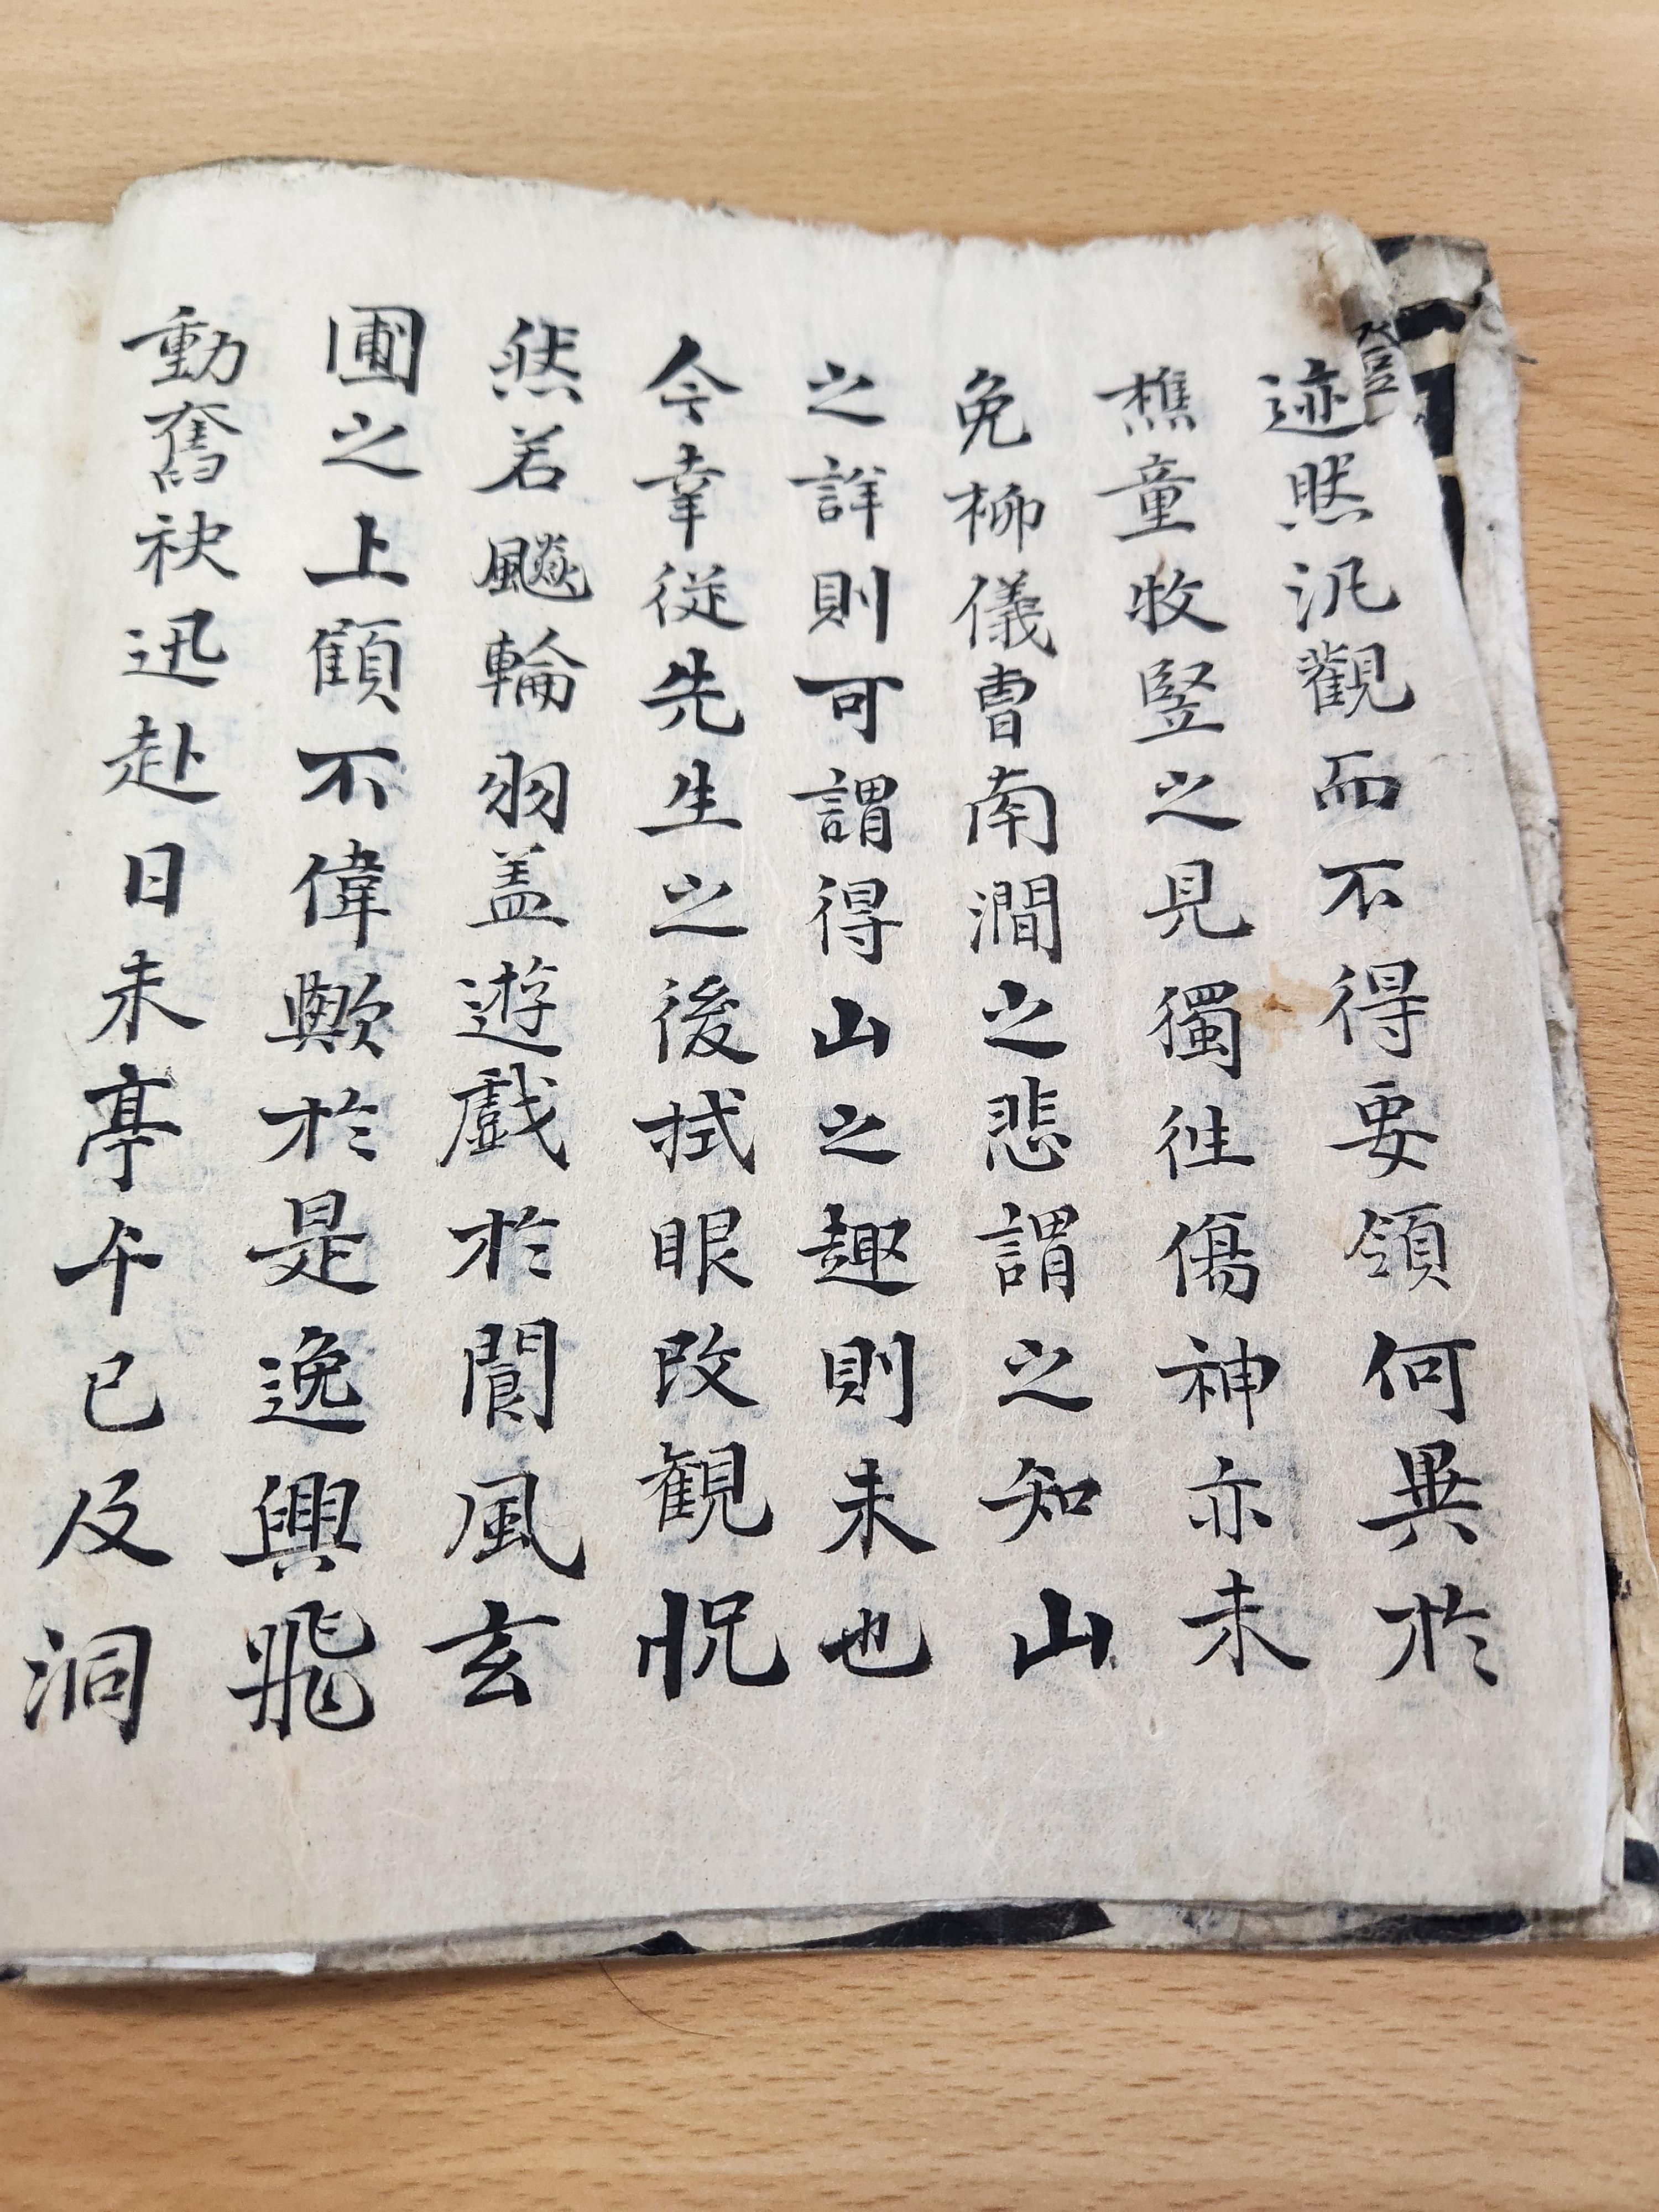 迹然汎觀而不得要領何異於
樵童牧竪之見獨往傷神亦未
免柳儀曹南澗之悲謂之知山
之詳則可謂得山之趣則未也
今幸從先生之後拭眼改觀怳
然若飈輪羽盖遊戲於閬風玄
圃之上顧不偉歟於是逸興飛
動奮袂迅赴日未亭午已及洞